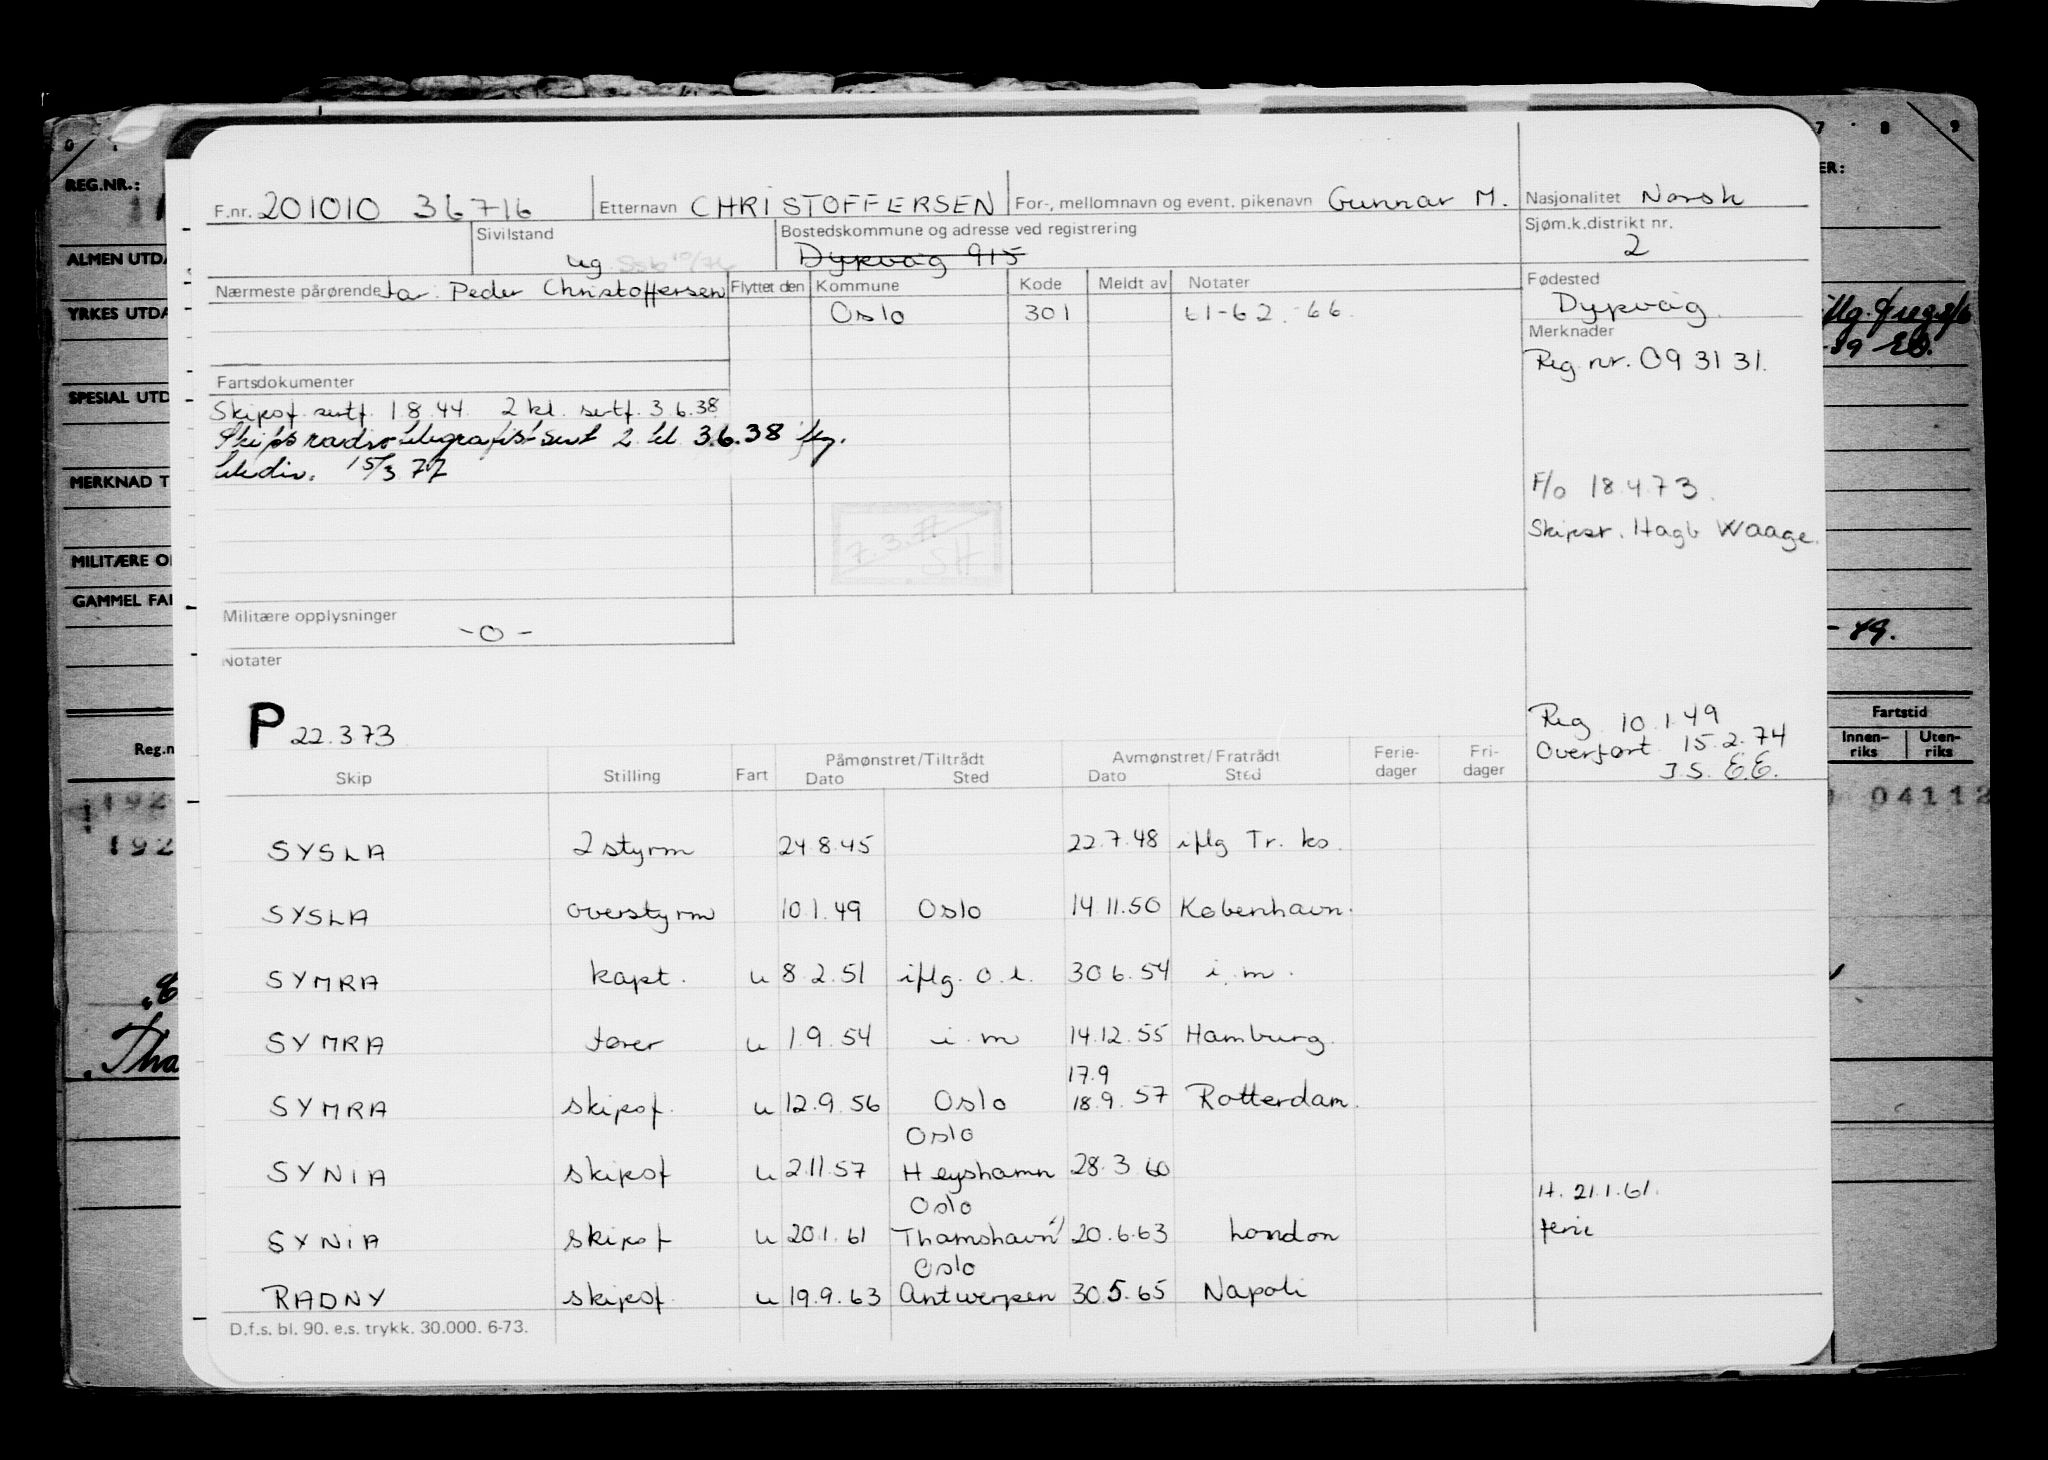 REG.NR.:
ALMEN UTDA
YRKES UTDA
SPESIAL UTD
MERKNAD T
MILITÆRE O
GAMMEL FA
Reg.n
Tha
7 8 9
ER:
- 49.
Fartstid
Innen-riks Uten-riks
04112
F.nr. 201010 36716 Etternavn CHRISTOFFERSEN For-, mellomnavn og event. pikenavn Gunnar M. Nasjonalitet Norsk
Sivilstand ug Bostedskommune og adresse ved registrering Dypvåg 915 Sjøm.k.distrikt nr. 2
Nærmeste pårørende far: Peder Christoffersen Flyttet den Kommune Kode Meldt av Notater Fødested Dypvåg
Oslo 301 61-62-66. Merknader
Reg. nr. 09 31 31.
Fartsdokumenter
Skipsf. sertf. 1.8.44. 2 kl. sertf. 3.6.38
Skips radiotelegrafist sert 2 kl 3.6.38 iflg.
teledir. 15/3 77
F/o 18.4.73.
Skipsr. Hagb Waage.
7.3.77
SH
Militære opplysninger -0-
Notater
P 22.373
Reg. 10.1.49
Overført 15.2.74
J.S. E.E.
Skip Stilling Fart Påmønstret/Tiltrådt Dato Sted Avmønstret/Fratrådt Dato Sted Ferie-dager Fri-dager
SYSLA 2 styrm 24.8.45 22.7.48 iflg Tr. ko.
SYSLA overstyrm 10.1.49 Oslo 14.11.50 København.
SYMRA kapt. u 8.2.51 iflg. o.l. 30.6.54 i.m.
SYMRA fører u 1.9.54 i.m 14.12.55 Hamburg.
17.9
SYMRA skipsf. u 12.9.56 Oslo 18.9.57 Rotterdam.
Oslo
SYNIA skipsf u 2.11.57 Heyshamn 28.3.60
Oslo H. 21.1.61.
SYNIA skipsf u 20.1.61 Thamshavn 20.6.63 London ferie
Oslo
RADNY skipsf. u 19.9.63 Antwerpen 30.5.65 Napoli
D.f.s. bl. 90. e.s. trykk. 30.000. 6-73.